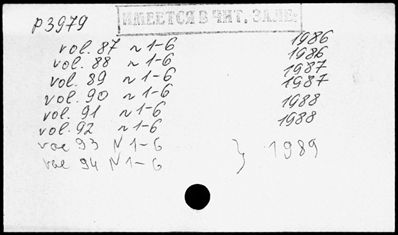 P3979 ИМЕЕТСЯ В ЧИТ. ЗАЛЕ.
vol. 87 N 1-6 1986
vol. 88 N 1-6 1986
vol. 89 N 1-6 1987
vol. 90 N 1-6 1987
vol. 91 N 1-6 1988
vol. 92 N 1-6 1988
vol 93 N 1-6 } 1989
vol 94 N 1-6